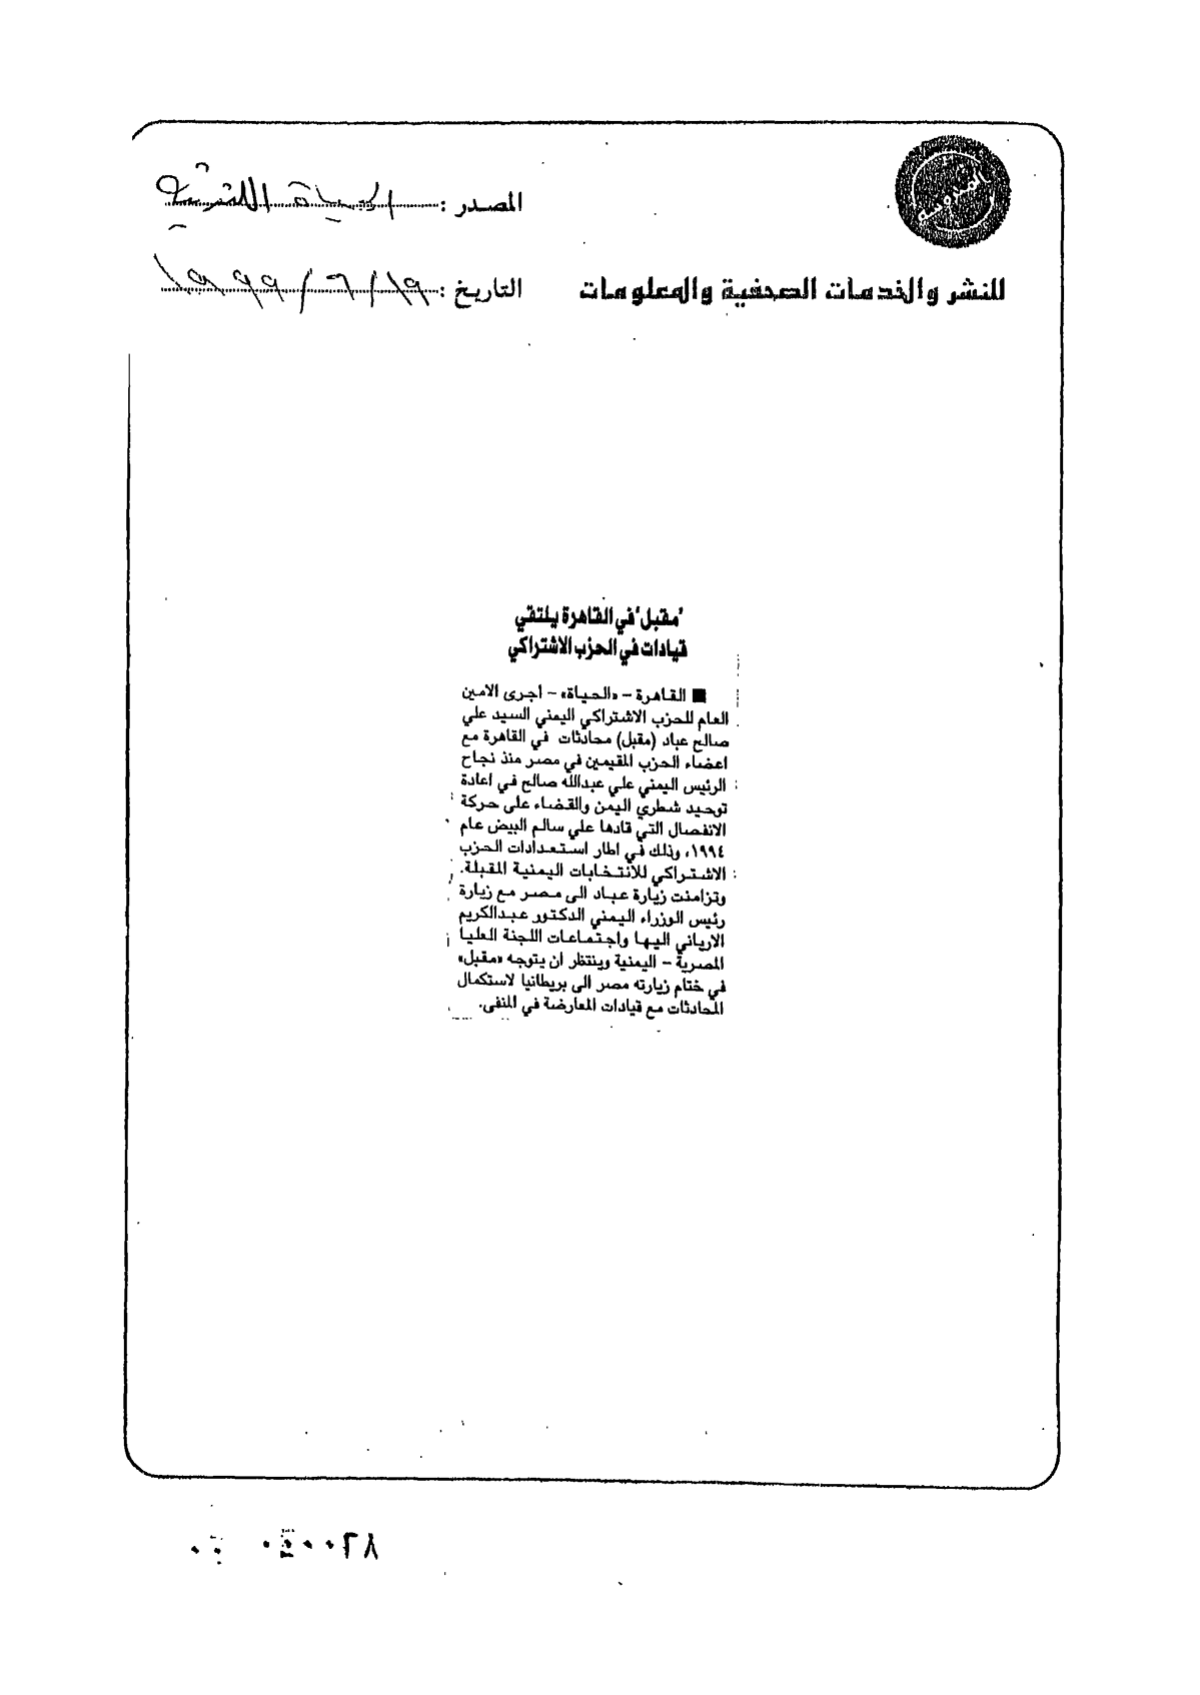 المصدر : الحياة اللندنية
المحروسة
للنشر والخدمات الصحفية والمعلومات
التاريخ : ١٩ / ٦ / ١٩٩٩
"مقبل" في القاهرة يلتقي
قيادات في الحزب الاشتراكي
■ القاهرة – «الحياة» – أجرى الامين
العام للحزب الاشتراكي اليمني السيد علي
صالح عباد (مقبل) محادثات في القاهرة مع
اعضاء الحزب المقيمين في مصر منذ نجاح
الرئيس اليمني علي عبدالله صالح في اعادة
توحيد شطري اليمن والقضاء على حركة
الانفصال التي قادها علي سالم البيض عام
١٩٩٤، وذلك في اطار استعدادات الحزب
الاشتراكي للانتخابات اليمنية المقبلة.
وتزامنت زيارة عباد الى مصر مع زيارة
رئيس الوزراء اليمني الدكتور عبدالكريم
الارياني اليها واجتماعات اللجنة العليا
المصرية – اليمنية وينتظر ان يتوجه «مقبل»
في ختام زيارته مصر الى بريطانيا لاستكمال
المحادثات مع قيادات المعارضة في المنفى.